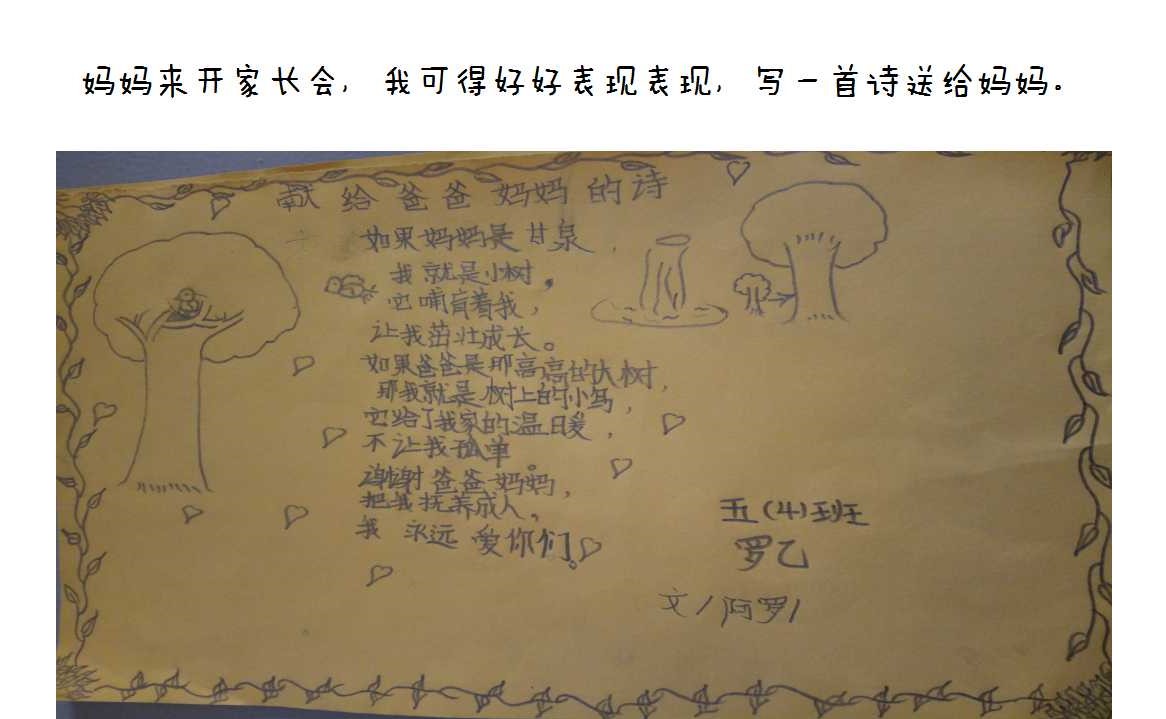 妈妈来开家长会，我可得好好表现表现，写一首诗送给妈妈。
献给爸爸妈妈的诗
如果妈妈是甘泉，
我就是小树，
它哺育着我，
让我茁壮成长。
如果爸爸是那高高的大树，
那我就是树上的小鸟，
它给了我家的温暖，
不让我孤单。
谢谢爸爸妈妈，
把我抚养成人，
我永远爱你们。
五(4)班
罗乙
文/阿罗/